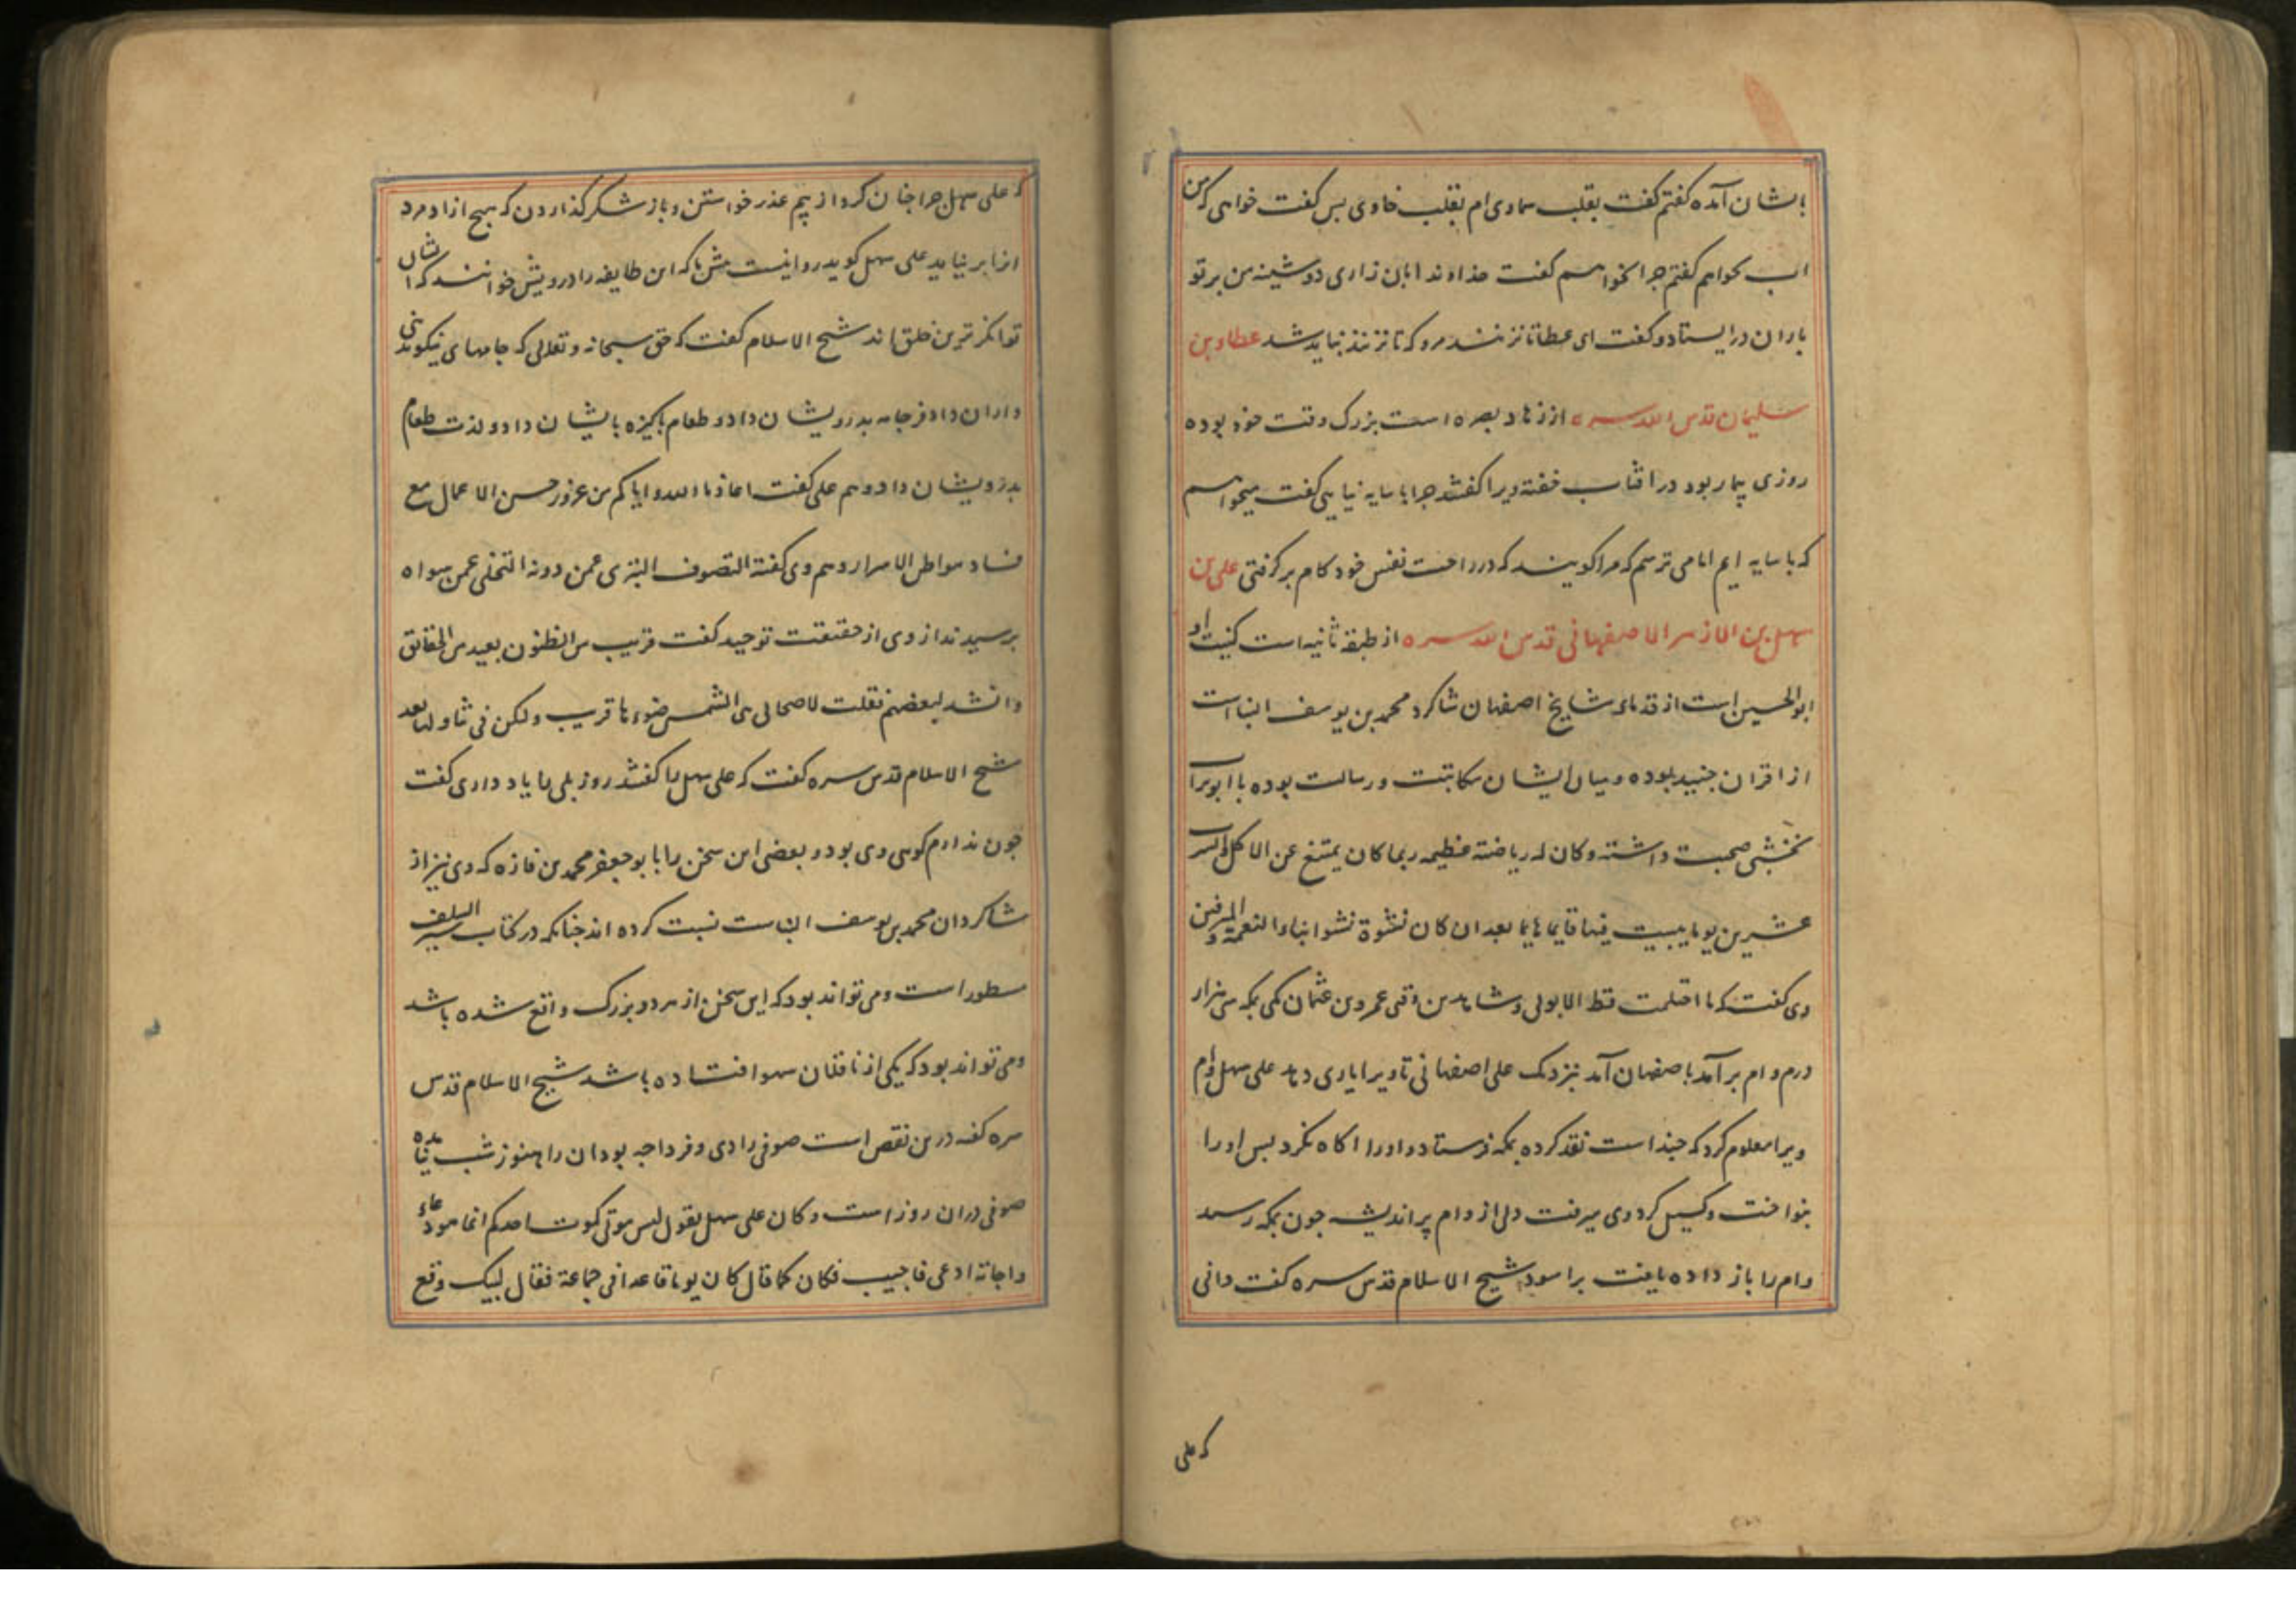 بایشان آمده گفتم گفت بقلب سماوی ام بقلب خاوی بس گفت خواهی که من
اب بخواهم گفتم چرا نخواهم گفت خداوندا بان زاری دوشینه من بر تو
باران در ایستاد و گفت ای عطا تا نزنند مرو که تا نزنند نباید شد عطاء بن
سلیمان قدس الله سره از زهاد بصره است بزرک وقت خود بوده
روزی بیمار بود در افتاب خفته ویرا گفتند چرا با سایه نیایی گفت میخواهم
که با سایه ایم اما می ترسم که مرا گویند که در راحت نفس خود کام بر گرفتی علی بن
سهل بن الازهر الاصفهانی قدس الله سره از طبقه ثانیه است کنیت او
ابوالحسین است از قدمای مشایخ اصفهان شاکرد محمد بن یوسف البنا است
از اقران جنید بوده و میان ایشان مکاتبت و رسالت بوده با ابوتراب
نخشبی صحبت داشته وکان له ریاضة عظیمه ربما کان یمتنع عن الاکل والشرب
عشرین یوما یبیت فیها قایما هایما بعد ان کان نشوة نشوا ابناء النعمة والمترفین
وی گفت که ما احتلمت قط الا بولی و شاهدین وقتی عمرو بن عثمان مکی بمکه سی هزار
درم وام بر آمد باصفهان آمد نزدیک علی اصفهانی تا ویرا یاری دهد علی سهل وام
ویرا معلوم کرد که چند است نقد کرده بمکه فرستاد و اورا اکاه نکرد بس اورا
بنواخت و کسیل کرد وی میرفت دل از وام پر اندیشه چون بمکه رسید
وام را باز داده یافت براسود شیخ الاسلام قدس سره گفت دانی
که علی
که علی سهل چرا چنان کرد از بیم عذر خواستن و باز شکر گذاردن که هیچ ازاد مرد
ازا بر نیاید علی سهل گوید روا نیست مش ما که این طایفه را درویش خوانند که ایشان
توانکر ترین خلق اند شیخ الاسلام گفت که حق سبحانه و تعالی که جامهای نیکو بدنیا
داران داد فر جامه بدرویشان داد و طعام باکیزه بایشان داد و لذت طعام
بدرویشان داد و هم علی گفت اعاذنا الله وایاکم من غرور حسن الاعمال مع
فساد بواطن الاسرار و هم وی گفته التصوف التبری عمن دونه التخلی عمن سواه
برسیدند از وی از حقیقت توحید گفت قریب من الظنون بعید من الحقائق
وانشد لبعضهم فقلت لاصحابی هی الشمس ضوءها قریب ولکن فی تناولها بعد
شیخ الاسلام قدس سره گفت که علی سهل را گفتند روز بلی را یاد داری گفت
چون ندارم گویی دی بود و بعضی این سخن را بابو جعفر محمد بن فاذه که وی نیز از
شاکردان محمد بن یوسف البنا ست نسبت کرده اند چنانکه در کتاب سیر السلف
مسطور است و می تواند بود که این سخن از هر دو بزرک واقع شده باشد
و می تواند بود که یکی از ناقلان سهو افتاده باشد شیخ الاسلام قدس
سره گفته درین نقص است صوفی را دی و فردا چه بود ان را هنوز شب نیامده
صوفی در ان روز است وکان علی سهل یقول لیس موتی کموت احدکم انما هو دعاء
واجابة ادعی فاجیب فکان کما قال کان یوما قاعدا فی جماعة فقال لبیک وقع